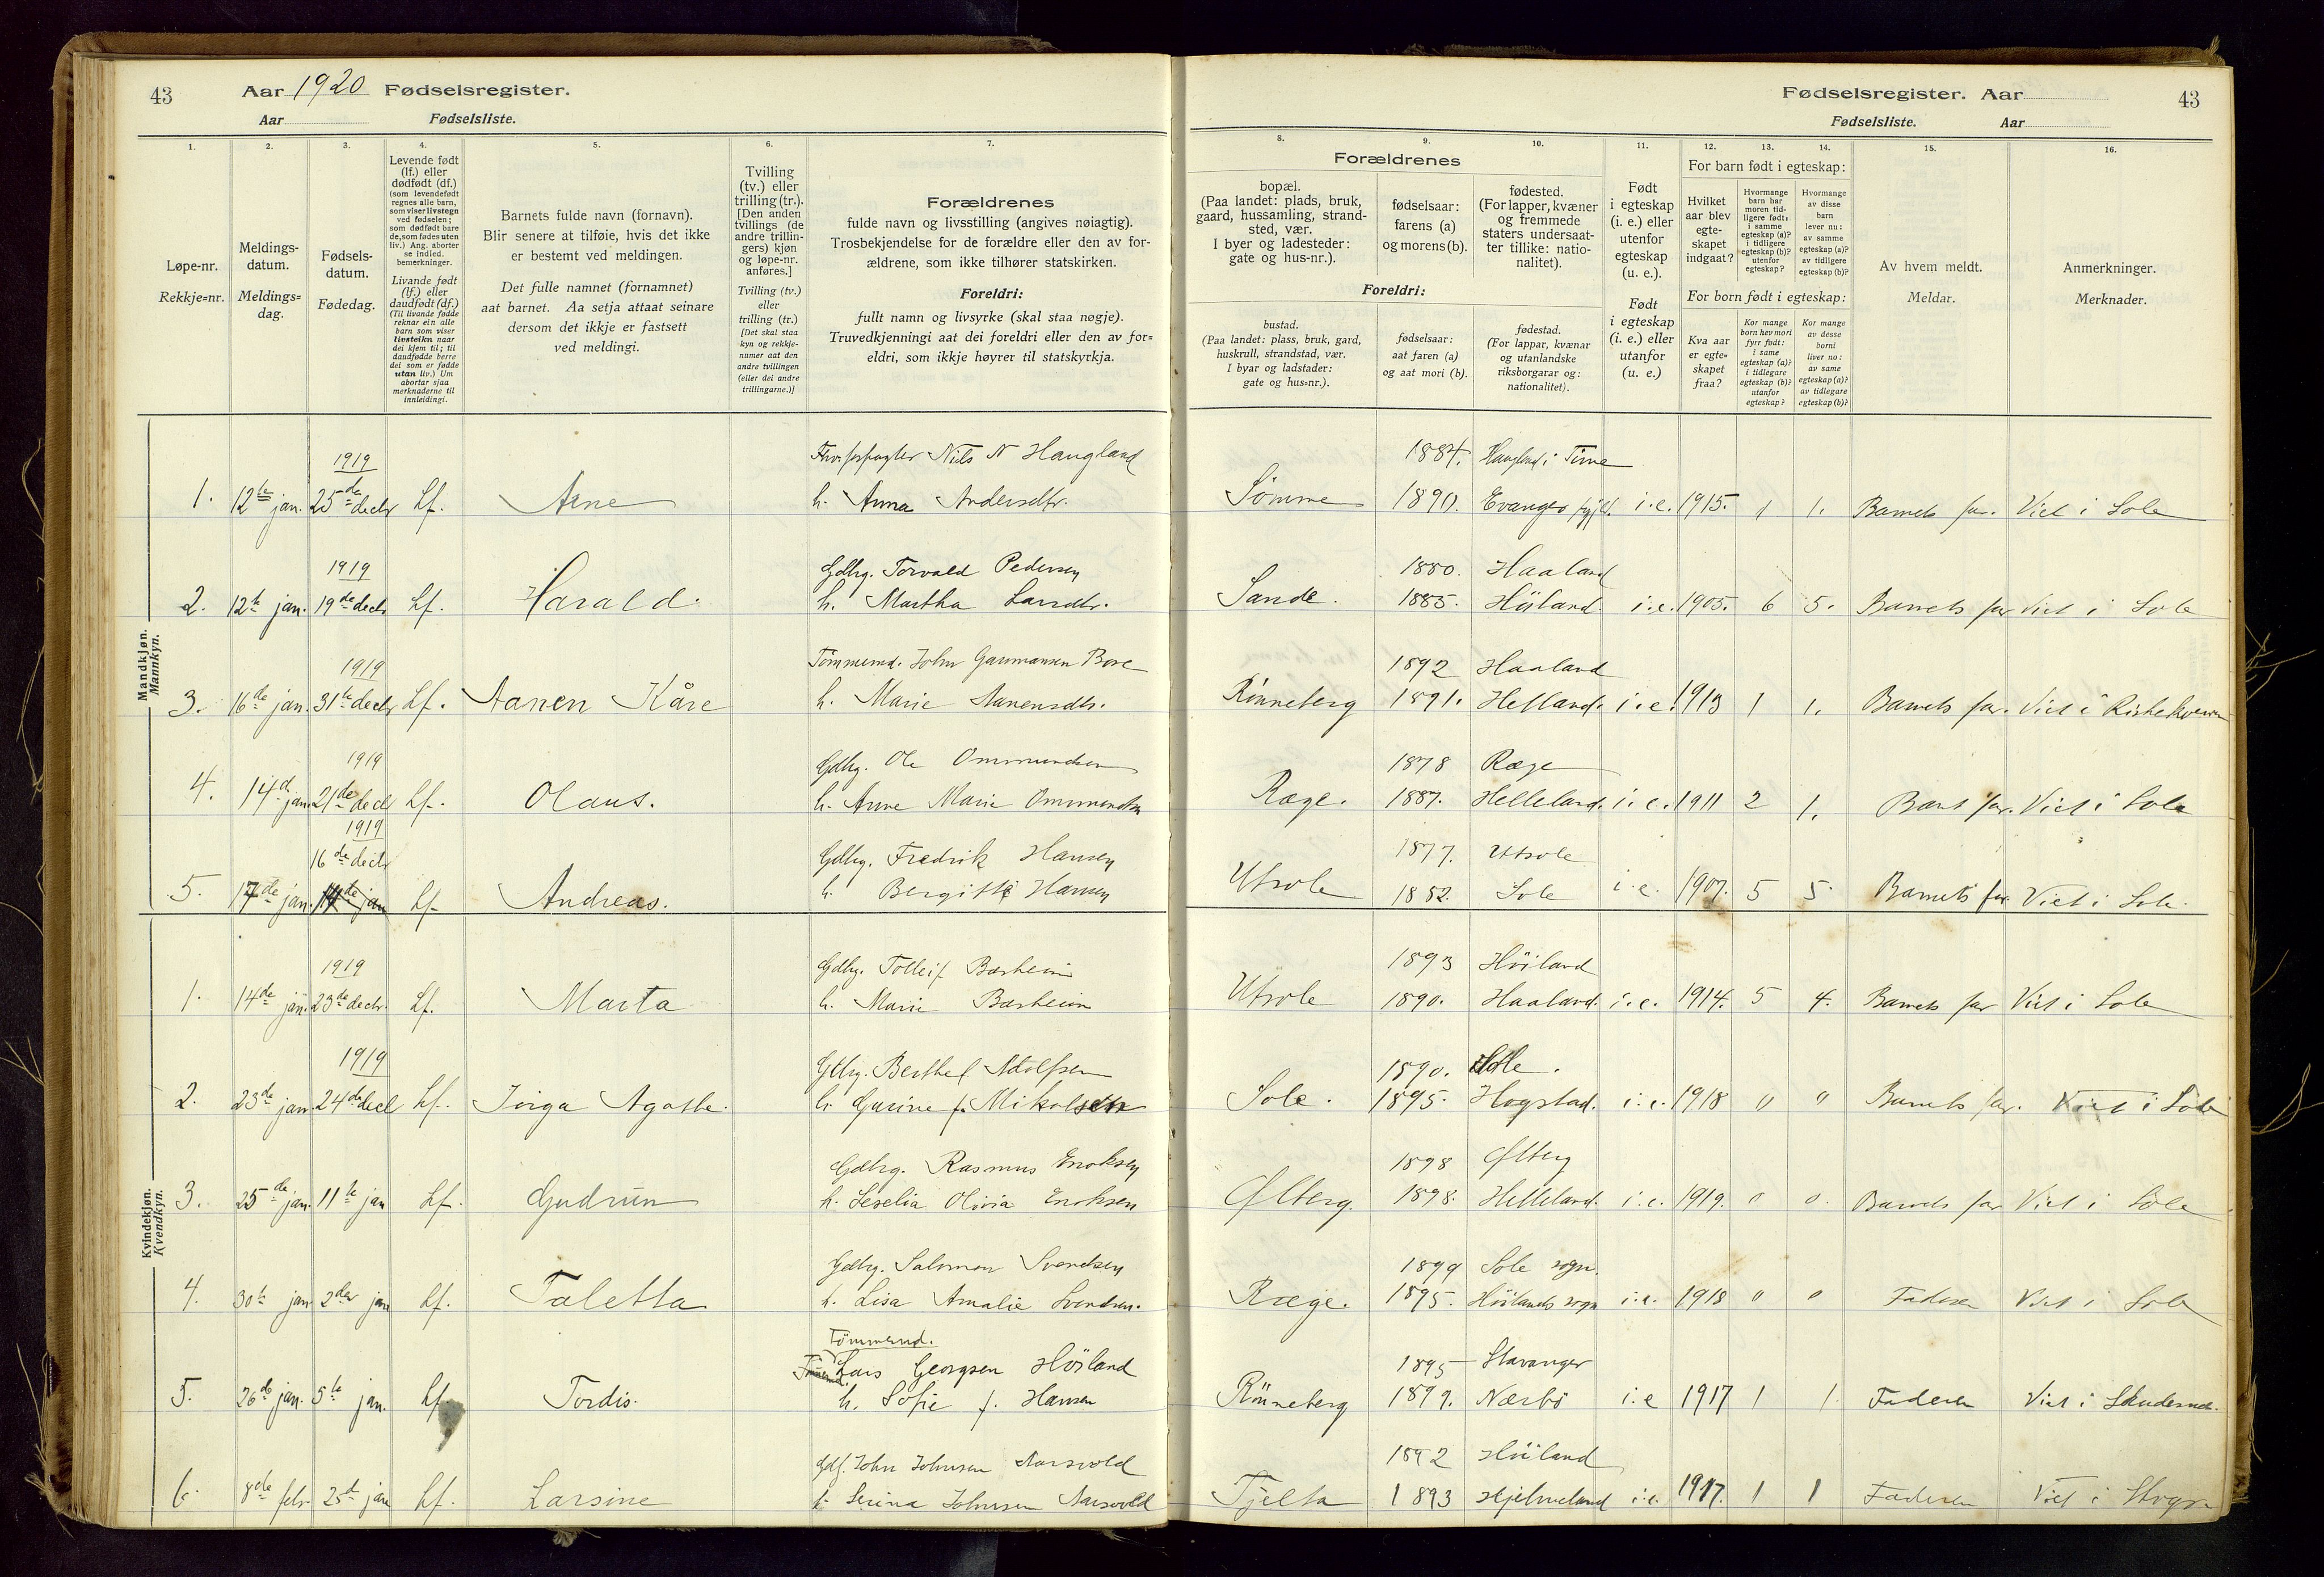 43
Aar 1920 Fødselsregister.
Aar Fødselsliste.
Fødselsregister. Aar
43
Fødselsliste. Aar
1. 2. 3. 4. 5. 6. 7.
Løpe-nr.
Rekkje=nr.
Meldings-
datum.
Meldings=
dag.
Fødsels-
datum.
Fødedag.
Levende født
(lf.) eller
dødfødt (df.)
(som levendefødt
regnes alle barn,
som viser livstegn
ved fødselen;
som dødfødt bare
de, som fødes uten
liv.) Ang. aborter
se indled.
bemerkninger.
Livande født
(lf.) eller
daudfødt (df.)
(Til livande fødde
reknar ein alle
barn som viser
livsteikn naar
dei kjem til; til
daudfødde berre
dei som er fødde
utan liv.) Um
abortar sjaa
merknaderne til
innleidingi.
Barnets fulde navn (fornavn).
Blir senere at tilføie, hvis det ikke
er bestemt ved meldingen.
Det fulle namnet (fornamnet)
aat barnet. Aa setja attaat seinare
dersom det ikkje er fastsett
ved meldingi.
Tvilling
(tv.) eller
trilling (tr.).
[Den anden
tvillings (de
andre trillin-
gers) kjøn
og løpe-nr.
anføres.]
Tvilling (tv.)
eller
trilling (tr.)
[Det skal staa
kyn og rekkje-
numer aat den
andre tvillingen
(eller dei andre
trillingarne.)]
Forældrenes
fulde navn og livsstilling (angives nøiagtig).
Trosbekjendelse for de forældre eller den av for-
ældrene, som ikke tilhører statskirken.
Foreldri:
fullt namn og livsyrke (skal staa nøgje).
Truvedkjenningi aat dei foreldri eller den av for=
eldri, som ikkje høyrer til statskyrkja.
8. 9. 10. 11. 12. 13. 14. 15. 16.
Forældrenes
bopæl.
(Paa landet: plads, bruk,
gaard, hussamling, strand-
sted, vær.
I byer og ladesteder:
gate og hus-nr.).
fødselsaar:
farens (a)
og morens (b).
fødested.
(For lapper, kvæner
og fremmede
staters undersaat-
ter tillike: natio-
nalitet).
Foreldri:
bustad.
(Paa landet: plass, bruk, gard,
huskrull, strandstad, vær.
I byar og ladstader:
gate og hus=nr.).
fødselsaar:
aat faren (a)
og aat mori (b).
fødestad.
(For lappar, kvænar
og utanlandske
riksborgarar og:
nationalitet).
Født
i egteskap
(i. e.) eller
utenfor
egteskap
(u. e.).
Født
i egteskap
(i. e.) eller
utanfor
(u. e.)
For barn født i egteskap:
Hvilket
aar blev
egte-
skapet
indgaat?
Hvormange
barn har
moren tid-
ligere født:
i samme
egteskap (a)?
i tidligere
egteskap (b)?
utenfor
egteskap?
Hvormange
av disse
barn
lever nu:
av samme
egteskap (a)?
av tidligere
egteskap (b)?
For born født i egteskap:
Kva aar
er egte=
skapet
fraa?
Kor mange
born hev mori
fyrr født:
i same
egteskap (a)?
i tidlegare
egteskap (b)?
utanfor
egteskap?
Kor mange
av desse
borni
liver no:
av same
egteskap (a)?
av tidlegare
egteskap (b)?
Av hvem meldt.
Meldar.
Anmerkninger.
Merknader.
Mandkjøn.
Mannkyn.
1919 Nils N Haugland 1884. Haugland i Time
1. 12te jan. 25de decbr Lf. Arne h. Anna Andersdtr. Sømme 1890. Evanger i. e. 1915. 1 1. Barnets far. Viet i Sole
1919 Gdbrg. Torvald Pedersen 1880. Haaland
2. 12te jan. 19de decbr Lf. Harald. h. Martha Larsdtr. Sande. 1885. Høiland. i. e. 1905. 6 5. Barnets far Viet i Sole
1919 Tømmermd. John Gaumansen Bore 1892 Haaland
3. 16de jan. 31te decbr Lf. Aanen Kåre h. Marie Aanensdtr. Rønneberg 1891. Helland. i. e. 1913 1 1. Barnets far. Viet i
1919 Gdbrg. Ole Ommundsen 1878 Ræge
4. 14d jan. 21de decb Lf. Olaus. h. Anne Marie Ommundsen Ræge. 1887. Helleland. i. e. 1911 2 1. Barnts far. Viet i Sole
1919
16de decbr Gdbrg. Fredrik Hansen 1877. Utsole
5. 17de jan. 14de jan Lf. Andreas. h. Bergitte Hansen Utsole 1882. Sole i. e. 1907. 5 5. Barnets far. Viet i Sole.
Kvindekjøn.
Kvendkyn.
1919 Gdbrg. Tolleif Bærheim 1893 Høiland
1. 14de jan. 23de decbr. Lf. Marta h. Marie Bærheim Utsole 1890. Haaland. i. e. 1914. 5 4. Barnets far Viet i Sole
1919 Gdbrg. Berthel Adolfsen 1890. Sole.
2. 23de jan. 24de decb Lf. Inga Agathe. h. Gurine f. Mikalsen Sole. 1895. Hogstad. i. e. 1918 " " Barnets far. Viet i Sole
Gdbrg. Rasmus Enoksen 1898 Ølberg
3. 25de jan. 11te jan Lf. Gudrun h. Seselia Olivia Enoksen Ølberg. 1898. Helleland. i. e. 1919. 0 0. Barnets far Viet i Sole
Gdbrg. Salomon Svendsen 1899 Sole sogn.
4. 30te jan 2den jan Lf. Taletta h. Lisa Amalie Svendsen. Ræge. 1895. Høilands sogn i. e. 1918 0 0 Faderen Viet i Sole
Tømmermd.
Lars Georgsen Høiland 1895 Stavanger
5. 26de jan. 5te jan. Lf. Tordis. h. Sofie f. Hansen Rønneberg 1899. Nærbø i. e 1917 1 1. Faderen Viet i Skudesnæs.
Gdf. John Johnsen Aarsvold 1892 Høiland
6. 8de febr 25de jan Lf. Larsine h. Serina Johnsen Aarsvold Tjelta 1893 Hjelmeland i. e. 1917. 1 1 Faderen Viet i